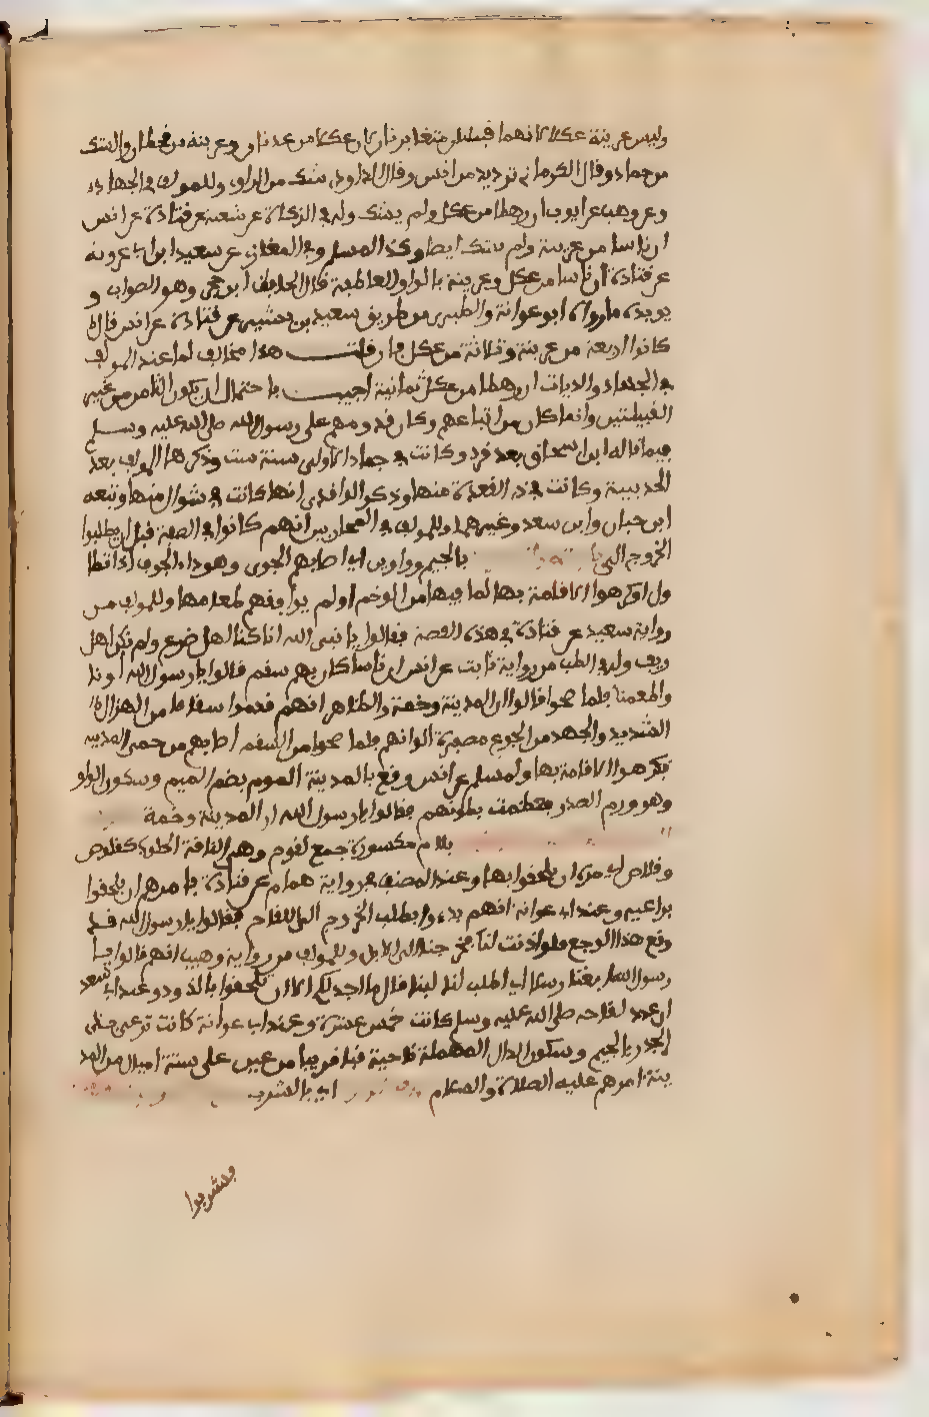 وليس عرينة عكلا لانهما قبيلتان متغايرتان لان عكلا من عدنان وعرينة من قحطان والشك
من حماد وقال الكرماني ترديد من انس وقال الداودي شك من الراوي وللمولف في الجهاد
وعن وهيب عن ايوب ان رهطا من عكل ولم يشك وله في الزكاة عن شعبة عن قتادة عن انس
ان ناسا من عرينة ولم يشك ايضا وكذا لمسلم وفي المغازي عن سعيد ابن ابي عروبة
عن قتادة ان ناسا من عكل وعرينة بالواو العاطفة قال الحافظ ابن حجر وهو الصواب و
يويده ما رواه ابو عوانة والطبري من طريق سعيد بن بشير عن قتادة عن انس قال
كانوا اربعة من عرينة وثلاثة من عكل فان قلت هذا مخالف لما عند المولف
في الجهاد والديات ان رهطا من عكل ثمانية اجيب باحتمال ان يكون الثامن من غير
القبيلتين وانما كان من اتباعهم وكان قدومهم على رسول الله صلى الله عليه وسلم
فيما قاله ابن اسحاق بعد قرد وكانت في جمادا الاولى سنة ست وذكرها المولف بعد
الحديبية وكانت في ذي القعدة منها وذكر الواقدي انها كانت في شوال منها وتبعه
ابن حبان وابن سعد وغيرهما وللمولف في المحاربين انهم كانوا في الصفة قبل ان يطلبوا
الخروج الى بالجيم وواوين اي اصابهم الجوى وهو داء الجوف اذا تطا
ول او كرهوا الاقامة بها لما فيها من الوخم او لم يوافقهم طعامها وللمولف من
رواية سعيد عن قتادة في هذه القصة فقالوا يا نبي الله انا كنا اهل ضرع ولم نكن اهل
ريف وله في الطب من رواية ثابت عن انس ان ناسا كان بهم سقم قالوا يا رسول الله اونا
واطعمنا فلما صحوا قالوا ان المدينة وخمة والظاهر انهم قدموا سقاما من الهزال
الشديد والجهد من الجوع مصفرة الوانهم فلما صحوا من السقم اصابهم من حمى المدينة
فكرهوا الاقامة بها ولمسلم عن انس وقع بالمدينة الموم بضم الميم وسكون الواو
وهو ورم الصدر فعظمت بطونهم فقالوا يا رسول الله ان المدينة وخمة
بلام مكسورة جمع لقوح وهي الناقة الحلوب كقلوص
وقلاص اي امرهم ان يلحقوا بها وعند المصنف من رواية همام عن قتادة فامرهم ان يلحقوا
براعيه وعند ابي عوانة انهم بدءوا بطلب الخروج الى اللقاح فقالوا يا رسول الله قد
وقع هذا الوجع فلو اذنت لنا فخرجنا الى الابل وللمولف من رواية وهيب انهم قالوا يا
رسول الله ابغنا رسلا اي اطلب لنا لبنا قال ما اجد لكم الا ان تلحقوا بالذود وعند ابن سعد
ان عدد لقاحه صلى الله عليه وسلم كانت خمس عشرة وعند ابي عوانة كانت ترعى بذي
الجدر بالجيم وسكون الدال المهملة ناحية قبا قريبا من عين على ستة اميال من المد
ينة امرهم عليه الصلاة والسلام اي بالشرب
فيشربوا